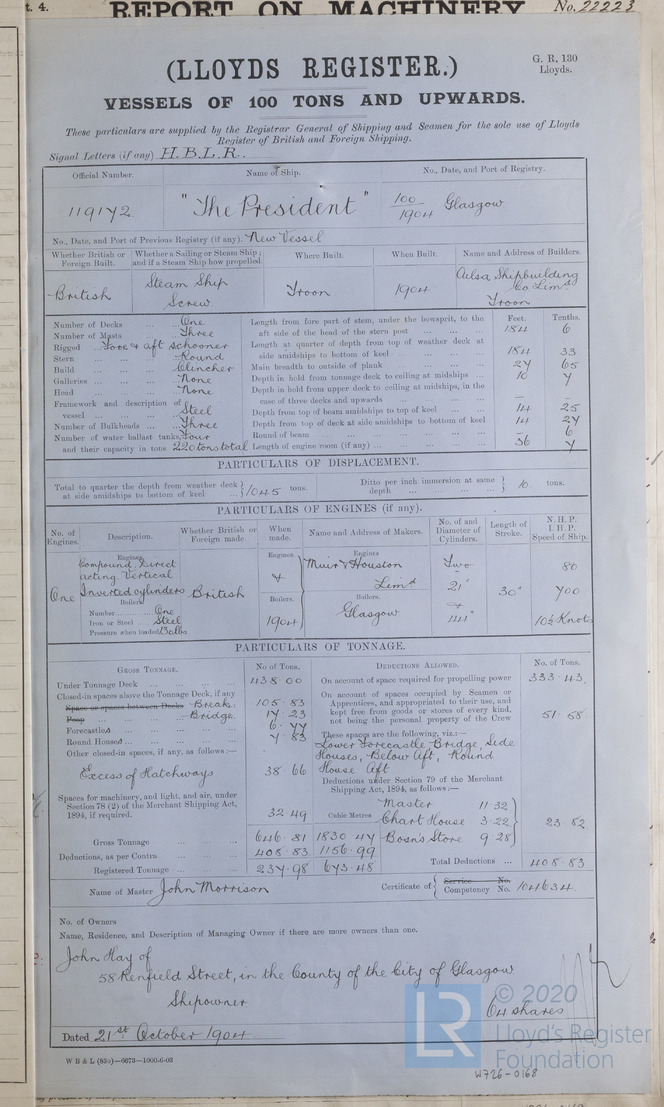 t. 4. REPORT ON MACHINERY No. 22223
(LLOYDS REGISTER.)
G. R, 130
Lloyds.
VESSELS OF 100 TONS AND UPWARDS.
These particulars are supplied by the Registrar General of Shipping and Seamen for the sole use of Lloyds
Register of British and Foreign Shipping.
Signal Letters (if any) H.B.L.R.
Official Number. Name of Ship. No., Date, and Port of Registry.
119172 "The President" 100/1904 Glasgow
No., Date, and Port of Previous Registry (if any). New Vessel
Whether British or Foreign Built. Whether a Sailing or Steam Ship; and if a Steam Ship how propelled. Where Built. When Built. Name and Address of Builders.
British Steam Ship Screw Troon 1904 Ailsa Shipbuilding Co Limd Troon
Number of Decks ... ... One
Number of Masts ... ... Three
Rigged ... Fore & aft schooner
Stern ... ... Round
Build ... ... Clincher
Galleries ... ... None
Head ... ... None
Framework and description of vessel ... ... Steel
Number of Bulkheads ... Three
Number of water ballast tanks, Four
and their capacity in tons 220 tons total
Feet. Tenths.
Length from fore part of stem, under the bowsprit, to the
aft side of the head of the stern post ... ... 184 6
Length at quarter of depth from top of weather deck at
side amidships to bottom of keel ... ... 184 33
Main breadth to outside of plank ... ... 27 65
Depth in hold from tonnage deck to ceiling at midships ... 10 7
Depth in hold from upper deck to ceiling at midships, in the
case of three decks and upwards ... ... – –
Depth from top of beam amidships to top of keel ... ... 14 25
Depth from top of deck at side amidships to bottom of keel 14 27
Round of beam ... ... 6
Length of engine room (if any) ... ... 36 7
PARTICULARS OF DISPLACEMENT.
Total to quarter the depth from weather deck at side amidships to bottom of keel ... 1045 tons.
Ditto per inch immersion at same depth ... ... 10 tons.
PARTICULARS OF ENGINES (if any).
No. of Engines. Description. Whether British or Foreign made. When made. Name and Address of Makers. No. of and Diameter of Cylinders. Length of Stroke. N.H.P. I.H.P. Speed of Ship.
Engines Engines Engines
Compound, Direct acting, Vertical Inverted cylinders
One British & 1904 Muir & Houston Limd Glasgow Two 21" & 44" 30" 80 700 10½ Knots
Boilers Boilers. Boilers.
Number ... One
Iron or Steel ... Steel
Pressure when loaded
PARTICULARS OF TONNAGE.
GROSS TONNAGE. No of Tons.
Under Tonnage Deck ... ... 438 00
Closed-in spaces above the Tonnage Deck, if any
Space or spaces between Decks Break. 105 · 83
Poop ... Bridge. 17 · 23
Forecastles ... 6 · 77
Round Houses ... ... 7 83
Other closed-in spaces, if any, as follows :—
Excess of Hatchways 38 66
Spaces for machinery, and light, and air, under
Section 78 (2) of the Merchant Shipping Act,
1894, if required. 32 · 49
Cubic Metres
Gross Tonnage ... ... 646 · 81 1830 · 47
Deductions, as per Contra ... 408 · 83 1156 · 99
Registered Tonnage ... ... 237 · 98 673 · 48
DEDUCTIONS ALLOWED. No. of Tons.
On account of space required for propelling power 333 · 43
On account of spaces occupied by Seamen or
Apprentices, and appropriated to their use, and
kept free from goods or stores of every kind,
not being the personal property of the Crew 51 · 58
These spaces are the following, viz.:—
Lower Forecastle Bridge, Side
Houses, Below Aft, Round
House Aft
Deductions under Section 79 of the Merchant
Shipping Act, 1894, as follows :—
Master 11 · 32
Chart House 3 · 22
Bosn's Store 9 · 28
23 · 82
Total Deductions ... 408 · 83
Name of Master John Morrison Certificate of Service No. Competency No. 104634.
No. of Owners
Name, Residence, and Description of Managing Owner if there are more owners than one.
John Hay of
58 Renfield Street, in the County of the City of Glasgow
Shipowner 64 shares
Dated 21st October 1904
W B & L (83o)—6673—1000-6-03
LR © 2020
Lloyd's Register
Foundation
W726-0168